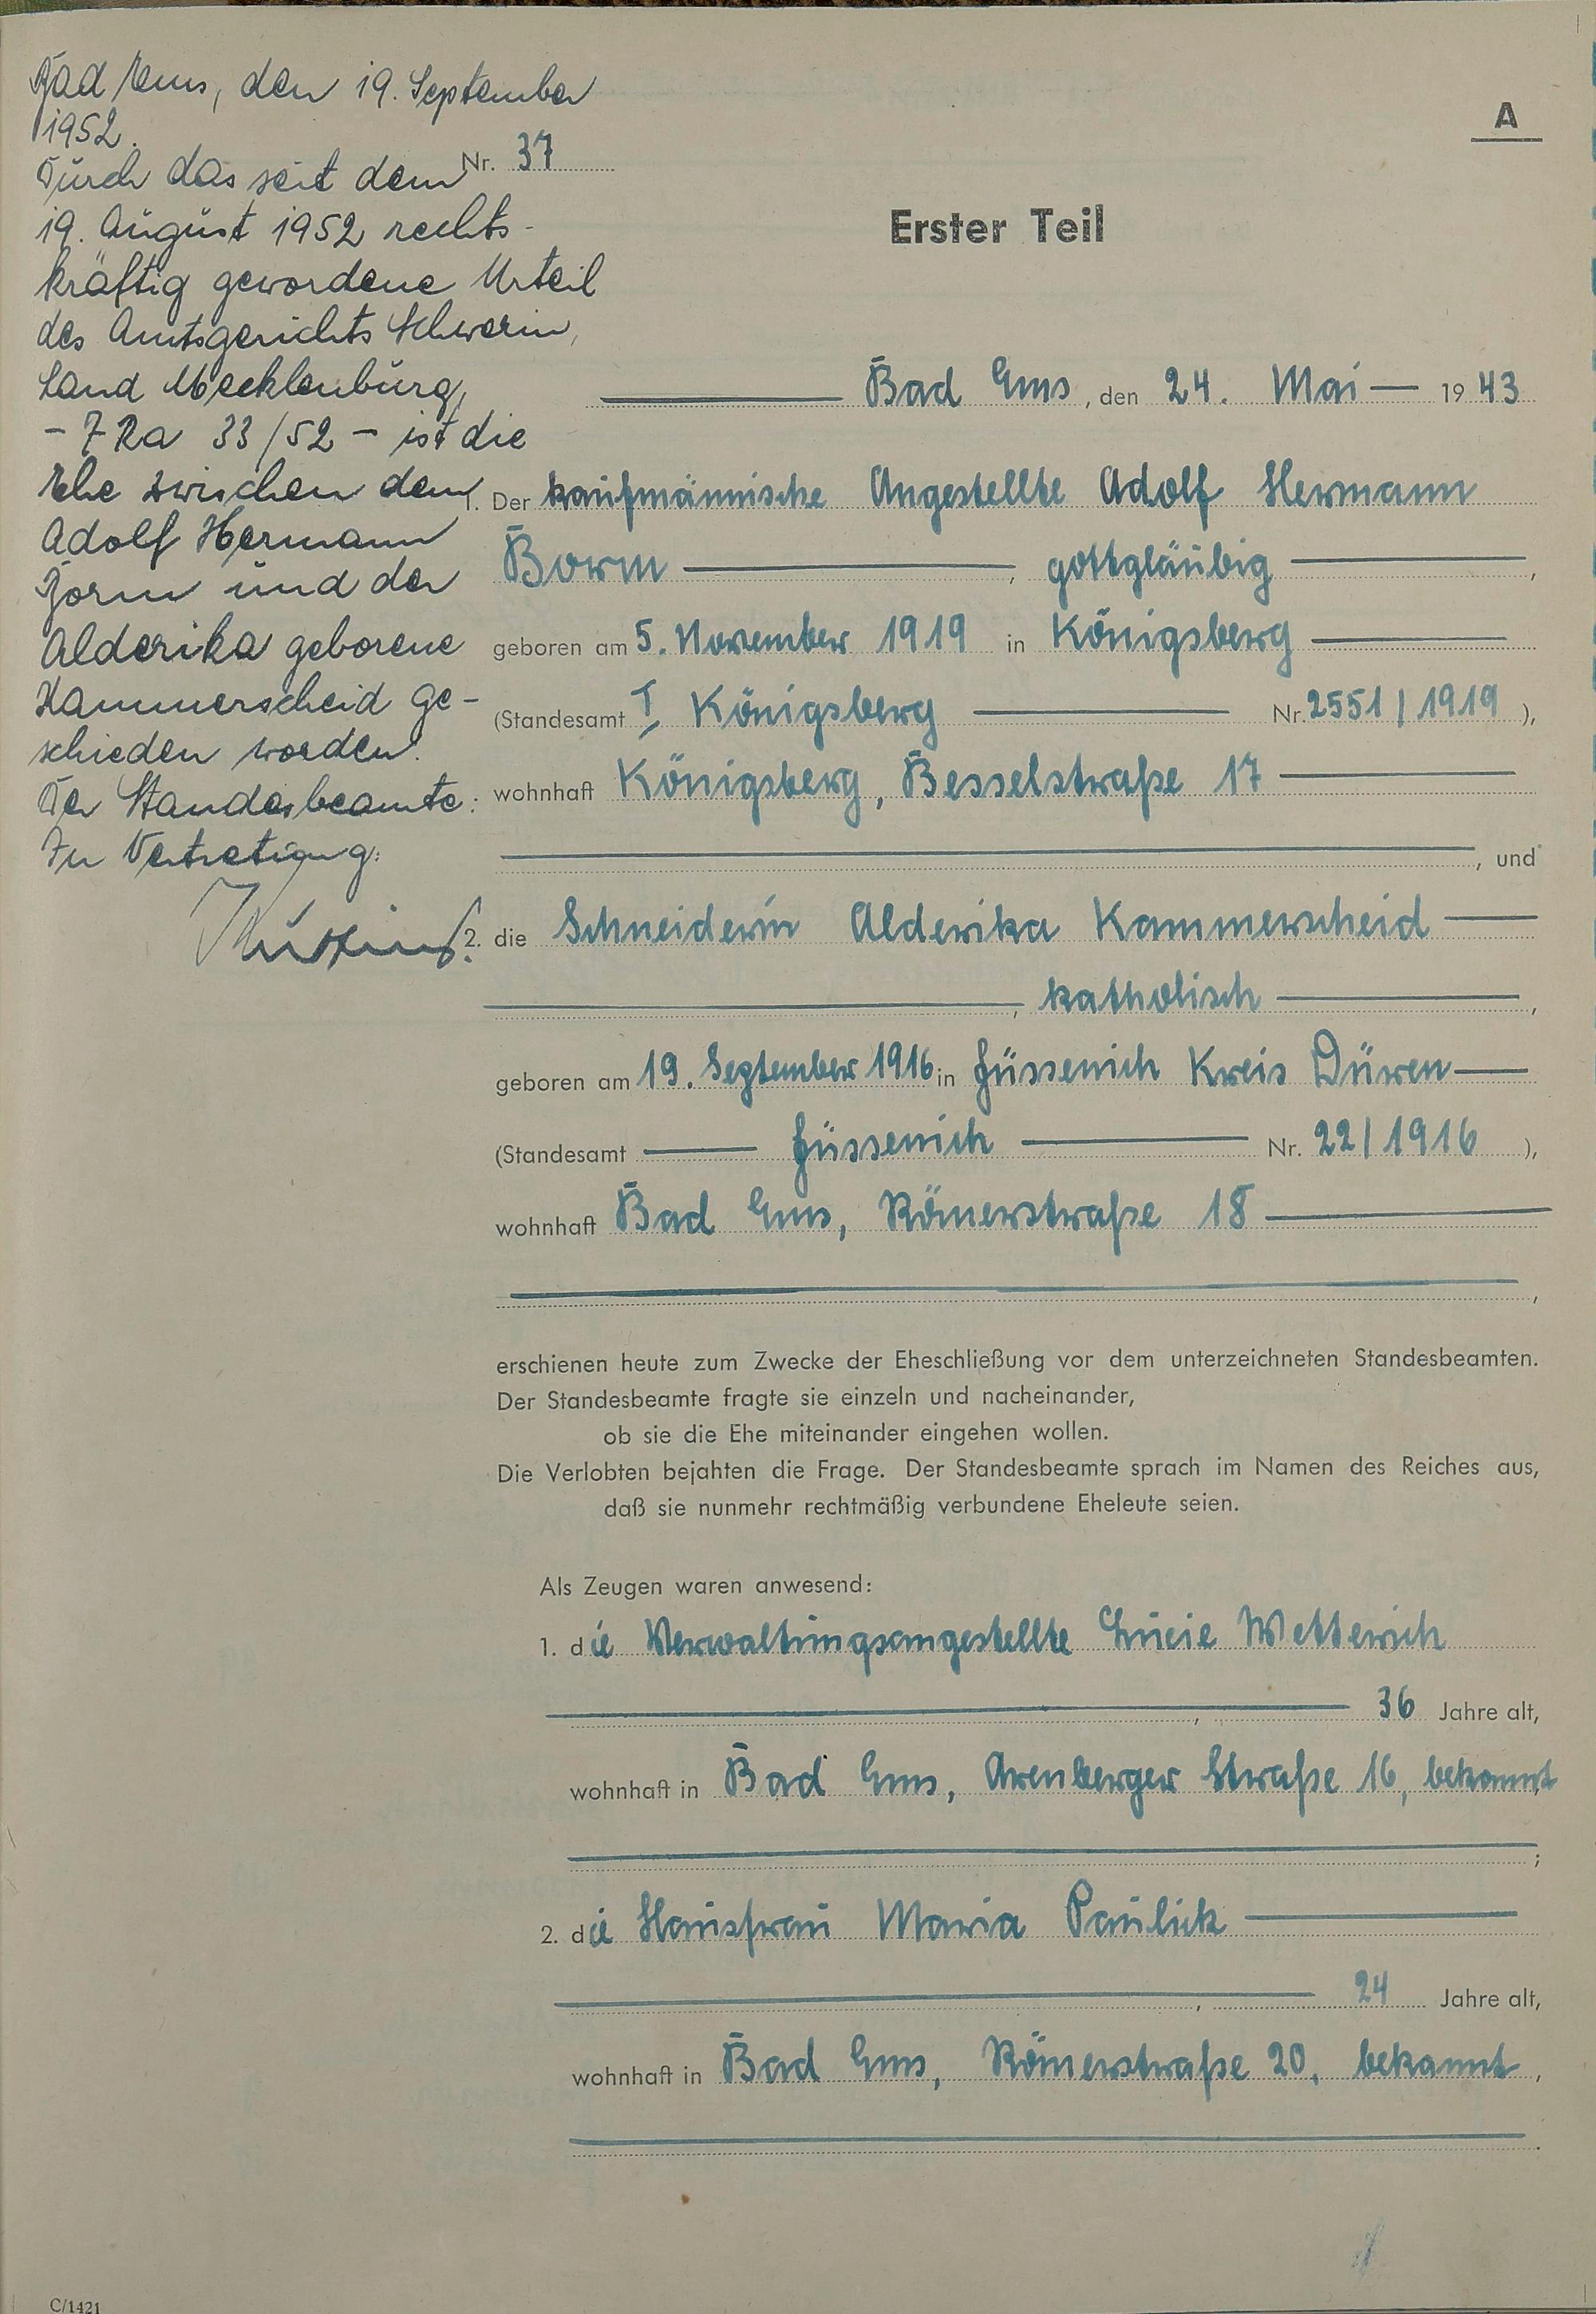 Bad Ems, den 19. September
1952.
Durch das seit dem
19. August 1952 rechts-
kräftig gewordene Urteil
des Amtsgerichts Schwerin,
Land Mecklenburg,
- 7 Ra 33/52 - ist die
Ehe zwischen dem
Adolf Hermann
Borm und der
Alderika geborene
Kammerscheid ge-
schieden worden.
Der Standesbeamte:
In Vertretung:
A
Nr. 37
Erster Teil
Bad Ems, den 24. Mai — 1943
1. Der kaufmännische Angestellte Adolf Hermann
Borm —, gottgläubig —,
geboren am 5. November 1919 in Königsberg —
(Standesamt I, Königsberg — Nr. 2551/1919),
wohnhaft Königsberg, Besselstraße 17 —
—, und
2. die Schneiderin Alderika Kammerscheid —
—, katholisch —,
geboren am 19. September 1916 in Füssenich Kreis Düren —
(Standesamt — Füssenich — Nr. 22/1916),
wohnhaft Bad Ems, Römerstraße 18 —
—,
erschienen heute zum Zwecke der Eheschließung vor dem unterzeichneten Standesbeamten.
Der Standesbeamte fragte sie einzeln und nacheinander,
ob sie die Ehe miteinander eingehen wollen.
Die Verlobten bejahten die Frage. Der Standesbeamte sprach im Namen des Reiches aus,
daß sie nunmehr rechtmäßig verbundene Eheleute seien.
Als Zeugen waren anwesend:
1. die Verwaltungsangestellte Lucie Wetterich
—, — 36 Jahre alt,
wohnhaft in Bad Ems, Arenberger Straße 16, bekannt,
—;
2. die Hausfrau Maria Paulick —
—, — 24 Jahre alt,
wohnhaft in Bad Ems, Römerstraße 20, bekannt,
—.
C/1421